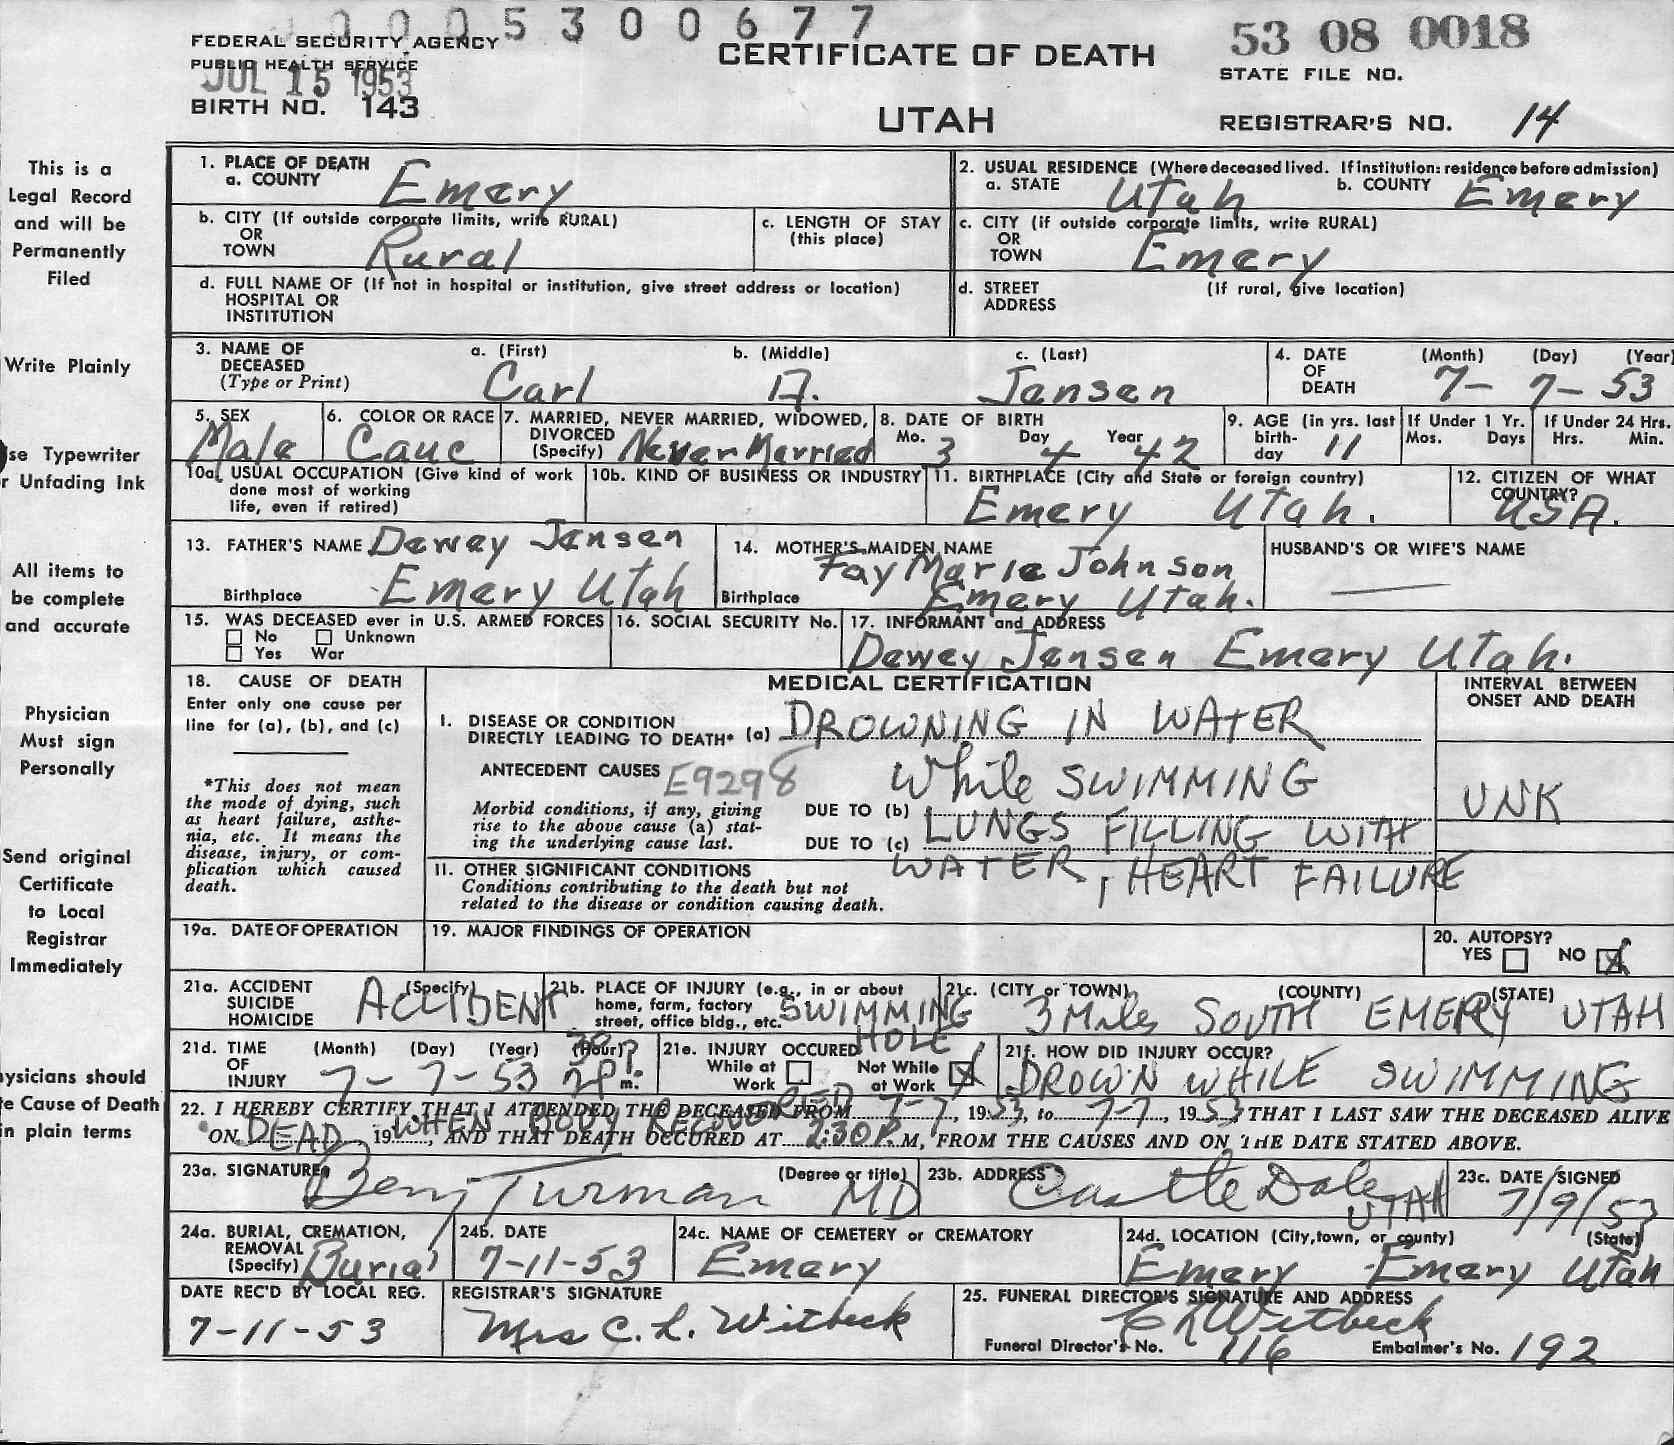 0005300677
FEDERAL SECURITY AGENCY
PUBLIC HEALTH SERVICE
JUL 15 1953
BIRTH NO. 143
CERTIFICATE OF DEATH
UTAH
53 08 0018
STATE FILE NO.
REGISTRAR'S NO. 14
This is a
Legal Record
and will be
Permanently
Filed
Write Plainly
se Typewriter
r Unfading Ink
All items to
be complete
and accurate
Physician
Must sign
Personally
Send original
Certificate
to Local
Registrar
Immediately
ysicians should
e Cause of Death
n plain terms
1. PLACE OF DEATH
a. COUNTY Emery
2. USUAL RESIDENCE (Where deceased lived. If institution: residence before admission)
a. STATE Utah b. COUNTY Emery
b. CITY (If outside corporate limits, write RURAL)
OR
TOWN Rural
c. LENGTH OF STAY
(this place)
c. CITY (if outside corporate limits, write RURAL)
OR
TOWN Emery
d. FULL NAME OF (If not in hospital or institution, give street address or location)
HOSPITAL OR
INSTITUTION
d. STREET (If rural, give location)
ADDRESS
3. NAME OF DECEASED (Type or Print)
a. (First) b. (Middle) c. (Last)
Carl D. Jensen
4. DATE OF DEATH (Month) (Day) (Year)
7- 7- 53
5. SEX
Male
6. COLOR OR RACE
Cauc
7. MARRIED, NEVER MARRIED, WIDOWED,
DIVORCED
(Specify) Never Married
8. DATE OF BIRTH
Mo. 3 Day 4 Year 42
9. AGE (in yrs. last
birth-
day 11
If Under 1 Yr.
Mos. Days
If Under 24 Hrs.
Hrs. Min.
10a. USUAL OCCUPATION (Give kind of work
done most of working
life, even if retired)
10b. KIND OF BUSINESS OR INDUSTRY
11. BIRTHPLACE (City and State or foreign country)
Emery Utah.
12. CITIZEN OF WHAT
COUNTRY?
USA.
13. FATHER'S NAME Dewey Jensen
Birthplace Emery Utah
14. MOTHER'S MAIDEN NAME
Fay Marie Johnson
Birthplace Emery Utah.
HUSBAND'S OR WIFE'S NAME
15. WAS DECEASED ever in U.S. ARMED FORCES
No Unknown
Yes War
16. SOCIAL SECURITY No.
17. INFORMANT and ADDRESS
Dewey Jensen Emery Utah.
18. CAUSE OF DEATH
Enter only one cause per
line for (a), (b), and (c)
*This does not mean
the mode of dying, such
as heart failure, asthe-
nia, etc. It means the
disease, injury, or com-
plication which caused
death.
MEDICAL CERTIFICATION
INTERVAL BETWEEN
ONSET AND DEATH
I. DISEASE OR CONDITION
DIRECTLY LEADING TO DEATH* (a) DROWNING IN WATER
ANTECEDENT CAUSES E9298 While SWIMMING
Morbid conditions, if any, giving
rise to the above cause (a) stat-
ing the underlying cause last.
DUE TO (b)
UNK
LUNGS FILLING WITH
DUE TO (c)
WATER, HEART FAILURE
11. OTHER SIGNIFICANT CONDITIONS
Conditions contributing to the death but not
related to the disease or condition causing death.
19a. DATE OF OPERATION
19. MAJOR FINDINGS OF OPERATION
20. AUTOPSY?
YES NO X
21a. ACCIDENT (Specify)
SUICIDE
HOMICIDE
ACCIDENT
21b. PLACE OF INJURY (e.g., in or about
home, farm, factory
street, office bldg., etc. SWIMMING
HOLE
21c. (CITY or TOWN) (COUNTY) (STATE)
3 Miles SOUTH EMERY UTAH
21d. TIME OF INJURY (Month) (Day) (Year) (Hour)
7-7-53 2 30 P m.
21e. INJURY OCCURED
While at Work
Not While at Work X
21f. HOW DID INJURY OCCUR?
DROWN WHILE SWIMMING
22. I HEREBY CERTIFY THAT I ATTENDED THE DECEASED FROM 7-7, 1953, to 7-7, 1953 THAT I LAST SAW THE DECEASED ALIVE
WHEN BODY RECOVERED
ON DEAD, 19, AND THAT DEATH OCCURED AT 2:30 P. M, FROM THE CAUSES AND ON THE DATE STATED ABOVE.
23a. SIGNATURE (Degree or title)
Benj Turman MD
23b. ADDRESS
Castle Dale
UTAH
23c. DATE SIGNED
7/9/53
24a. BURIAL, CREMATION,
REMOVAL
(Specify) Burial
24b. DATE
7-11-53
24c. NAME OF CEMETERY OR CREMATORY
Emery
24d. LOCATION (City, town, or county) (State)
Emery Emery Utah
DATE REC'D BY LOCAL REG.
7-11-53
REGISTRAR'S SIGNATURE
Mrs C. L. Witbeck
25. FUNERAL DIRECTOR'S SIGNATURE AND ADDRESS
C L Witbeck
Funeral Director's No. 116 Embalmer's No. 192